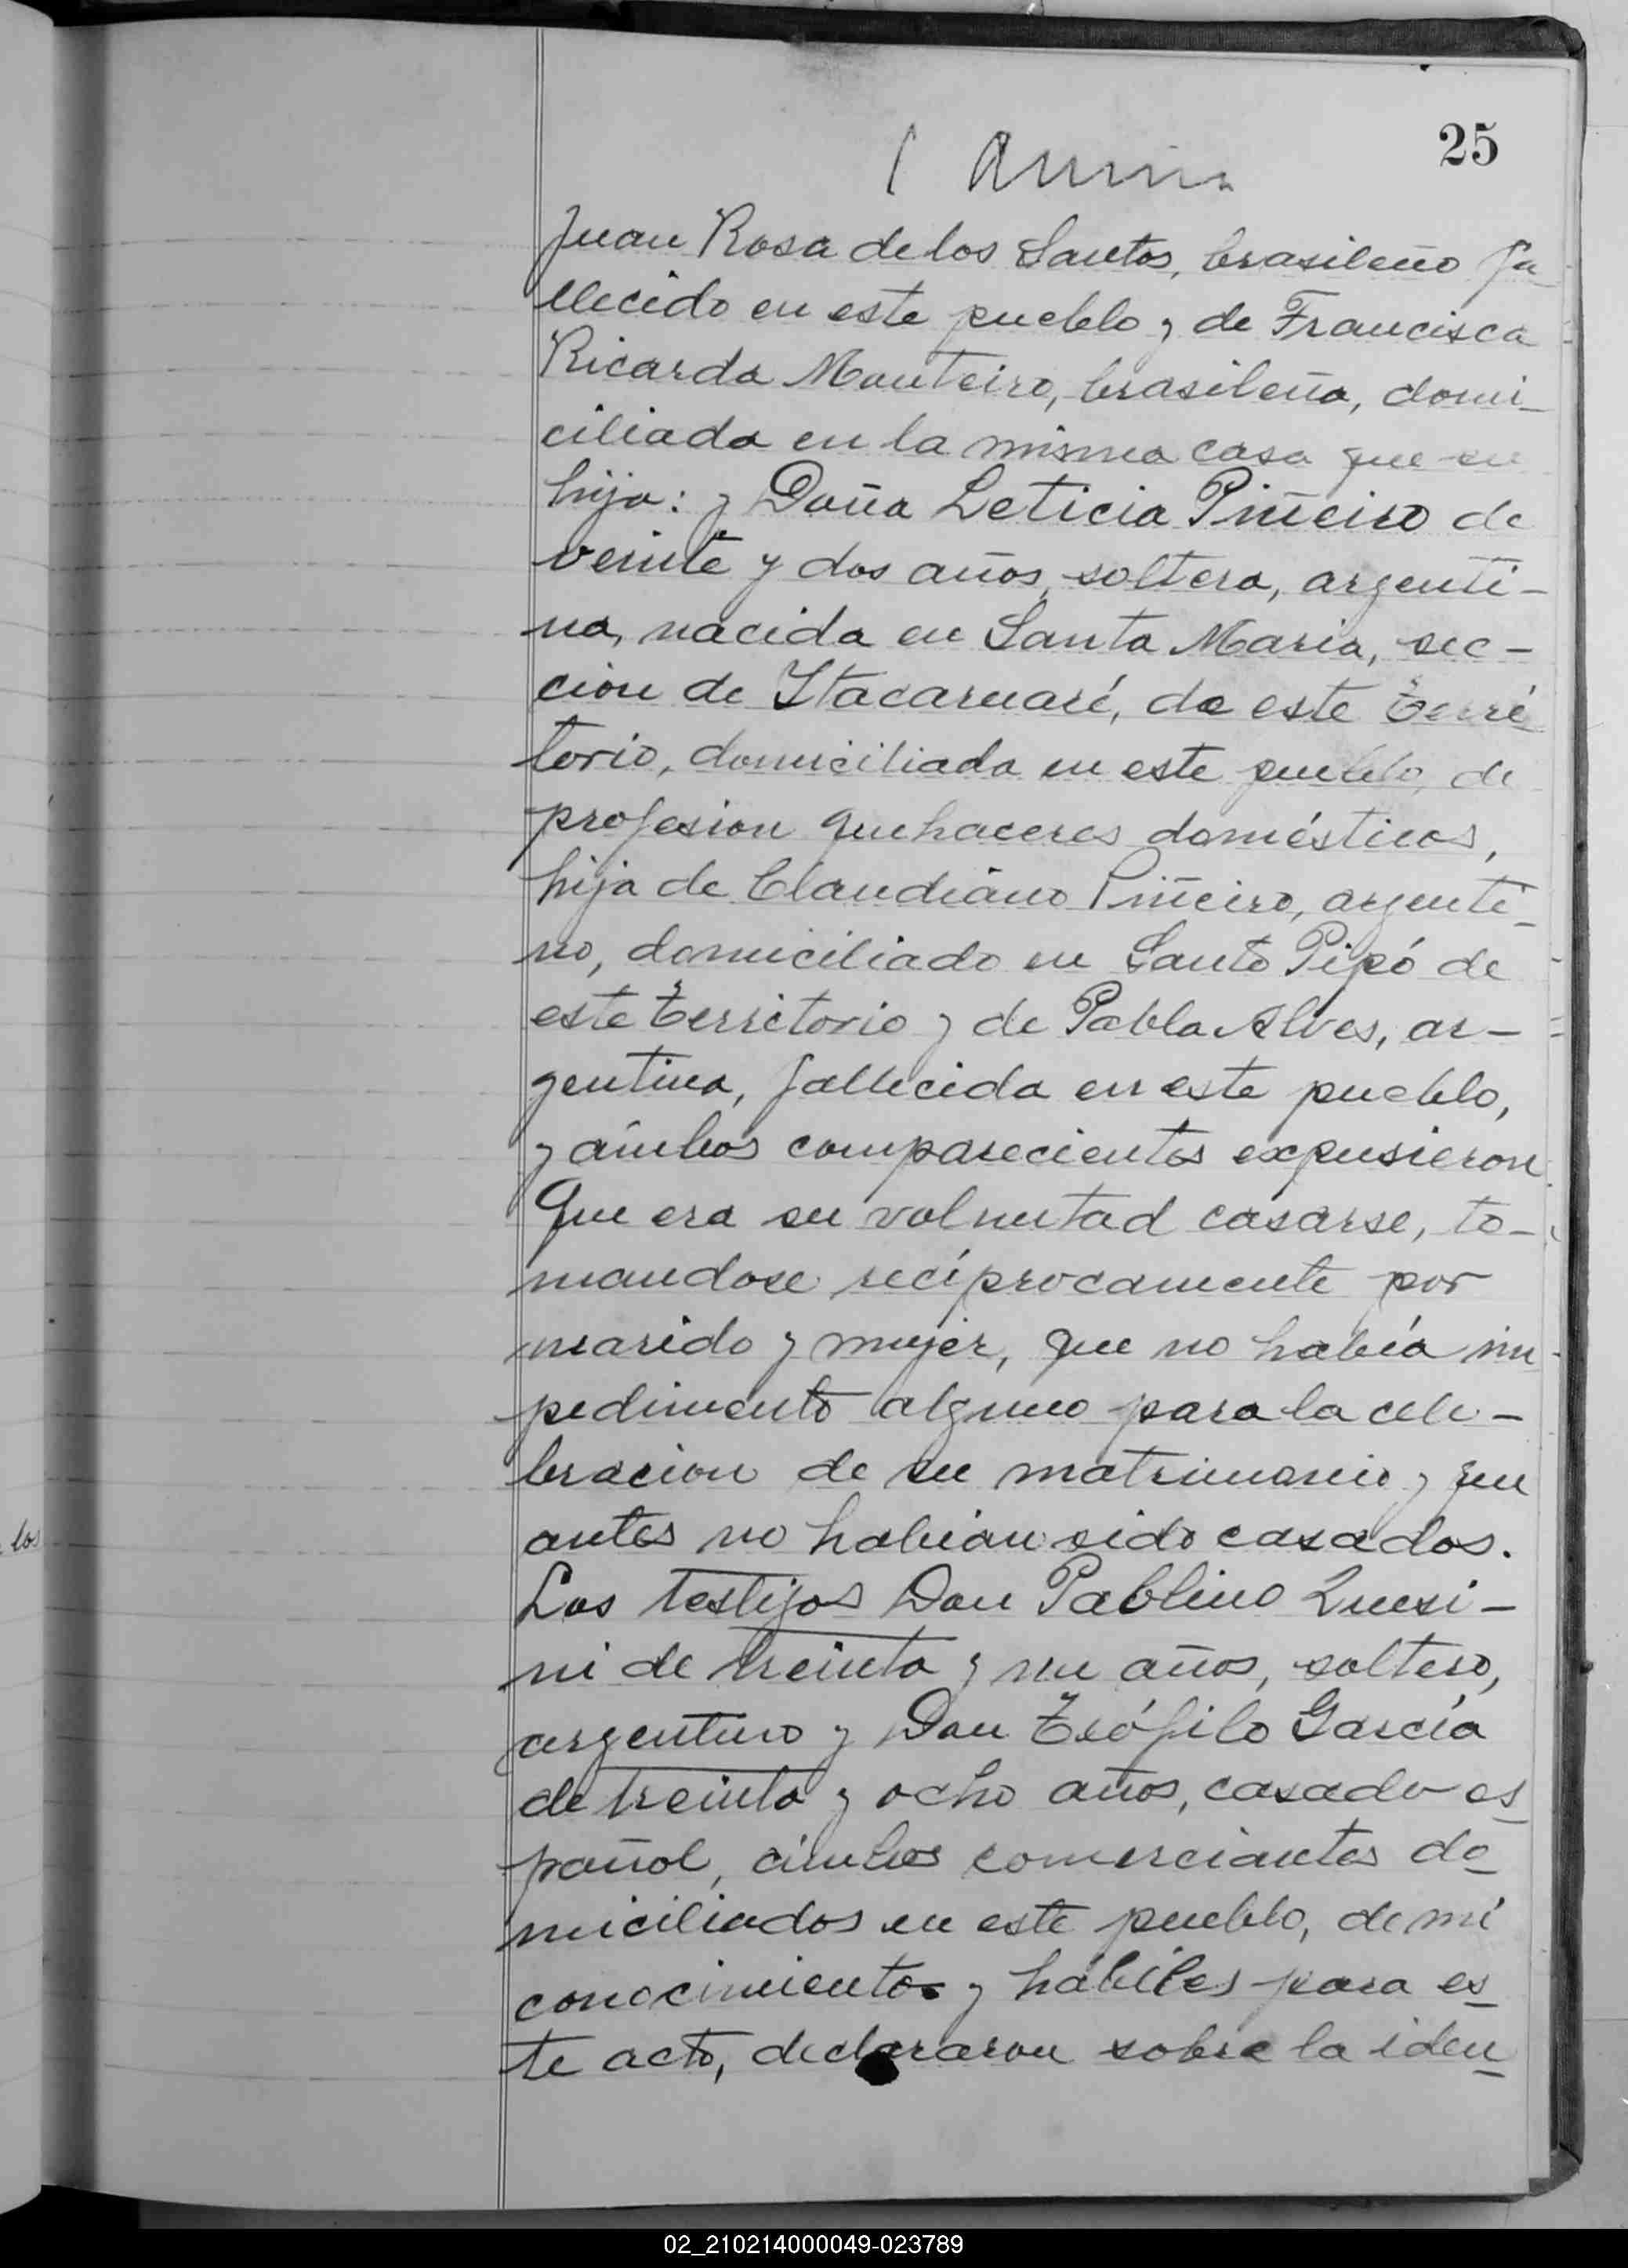 25
Juan Rosa de los Santos, brasileño fa
llecido en este pueblo y de Francisca
Ricarda Monteiro, brasileña, domi_
ciliada en la misma casa que su
hijo: y Doña Leticia Piñeiro de
veinte y dos años, soltera, argenti-
na, nacida en Santa Maria, sec-
ción de Itacaruaré, de este terri
torio, domiciliada en este pueblo, de
profesion quehaceres domésticos,
hija de Claudiano Piñeiro, argenti_
no, domiciliado en Santo Pipó de
este territorio y de Pabla Alves, ar-
gentina, fallecida en este pueblo,
y ámbos comparecientes expusieron
Que era su voluntad casarse, to-
mandose recíprocamente por
marido y mujer, que no había im
pedimento alguno para la cele-
bracion de su matrimonio y que
antes no habian sido casados.
Los testigos Don Pablino
ni de treinta y un años, soltero,
argentino y Don Teófilo García
de treinta y ocho años, casado es
pañol, ámbos comerciantes do
miciliados en este pueblo, de mi
conocimiento y hábiles para es
te acto, declararon sobre la iden
los
02_210214000049-023789